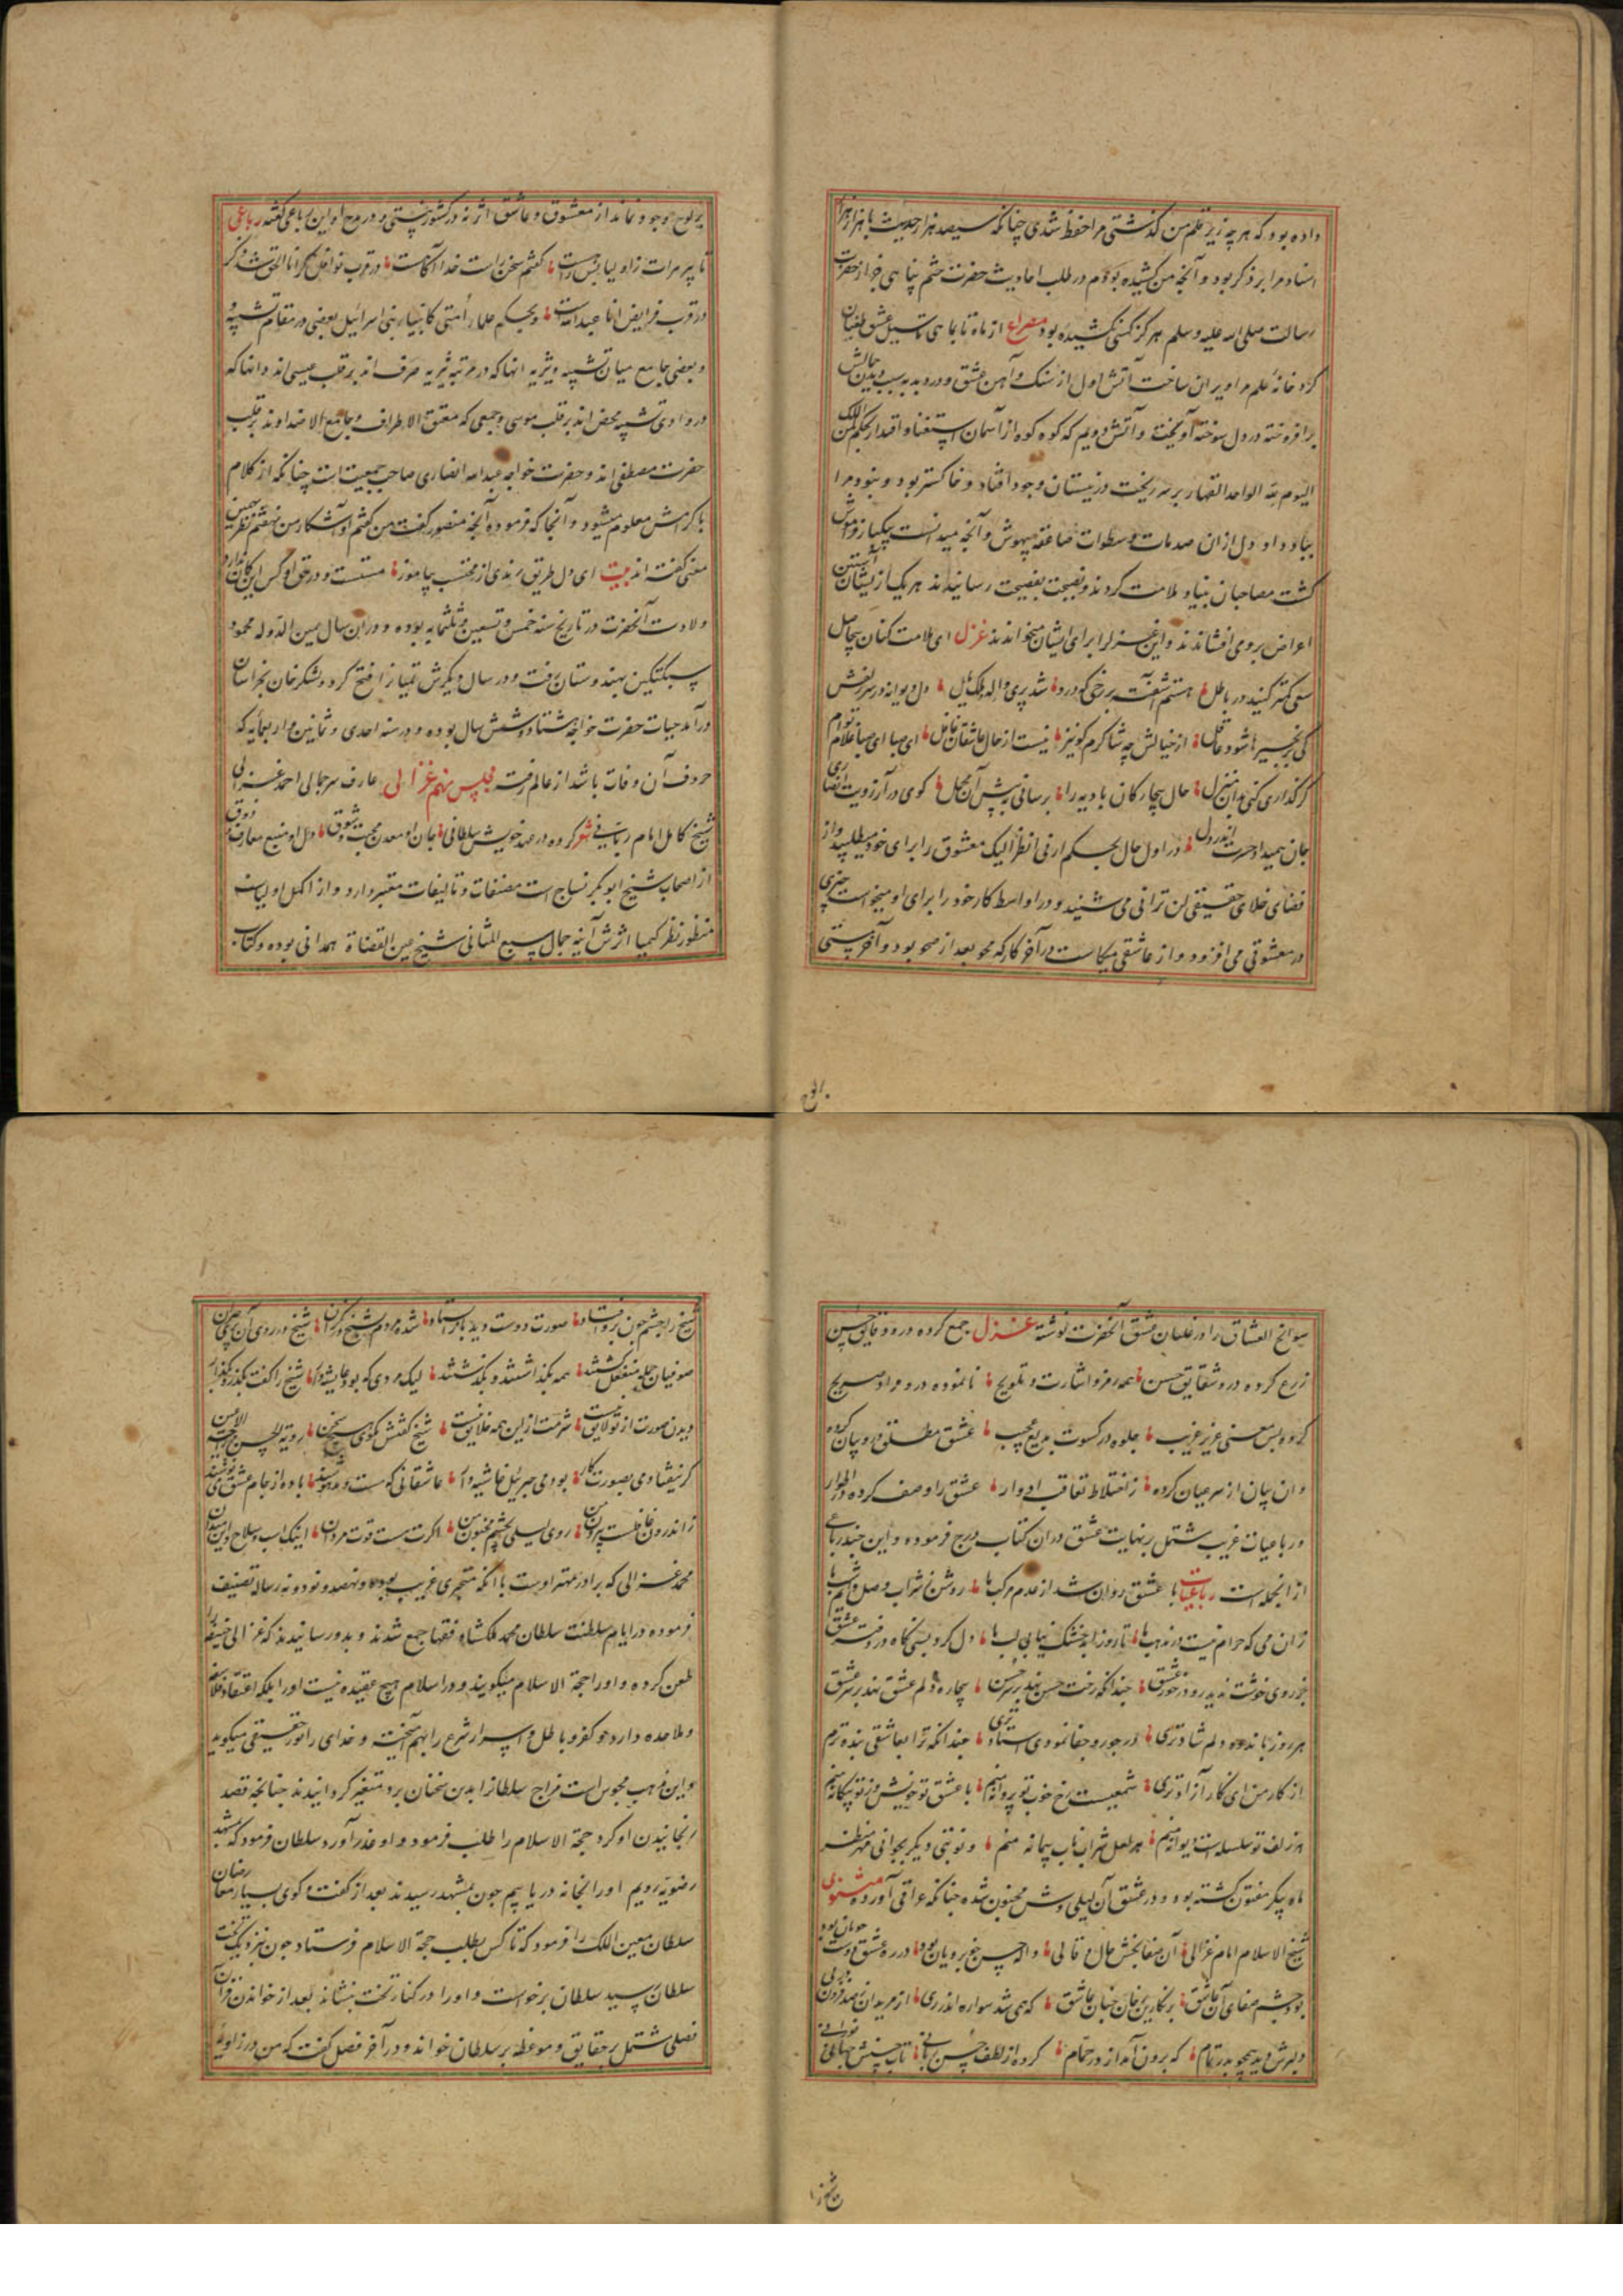 داده بود که هر چه زیر قلم من گذشتی مرا حفظ شدی چنانکه سیصد هزار حدیث با هزار هزار
اسناد مرا بر ذکر بود و آنچه من کشیده بودم در طلب احادیث حضرت ختم پناهی خواز حضرت
رسالت صلی الله علیه وسلم هرگز کسی نکشیده بود مصراع از ماه تا بماهی تا سیل عشق طغیان
کرد خانهٔ علم مرا ویران ساخت آتش اول از سنک و آهن عشق و درد بدبه سبب دیدن جمالش
برافروخته در دل سوخته آویخت و آتش دویم که کوه کوه از آسمان استغنا و اقتدار بحکم لمن الملک
الیوم لله الواحد القهار بر سر ریخت در نیستان وجود افتاد و خاکستر بود و نبود مرا
بباد داد دل ازان صدمات و سطوات صاعقه بیهوش و آنچه میدانست بیکبار فراموش
کشت مصاحبان بنیاد ملامت کردند و نصیحت بفضیحت رسانیدند هر یک از یشان آستین
اعراض بروی افشاندند و این غزل را برای ایشان میخواندند غزل ای ملامت کنان بیحاصل
سعی کمتر کنید در باطل هستم آشفته بر رخی که درو شد پری واله و ملک مایل دل دیوانه در سر زلفش
کی بزنجیرها شود عاقل از خیالش چه شاکرم کو نیز نیست از حال عاشقان غافل ای صبا ای صبا غلام توام
گر گذاری کنی بدان منزل حال بیچارکان بادیه را برسانی به پیش آن محمل کوی در آرزویت انصاری
جان همیداد حسرت اندر دل در اول حال بحکم ارنی انظر الیک معشوق را برای خود میطلبید و از
فضای خلای حقیقی لن ترانی می شنید و در اواسط کار خود را برای او میخواست چیزی
در معشوقی می افزود و از عاشقی میکاست در آخر کار که محو بعد از صحو بود و آخر پستی
بر لوح وجود نماند از معشوق و عاشق اثر نه در کشور هستی و در مدح او این رباعی گفته رباعی
تا پیر هرات زاولیا بنشست کفتم سخن راست خدا آگاهست در قرب نوافل مکر انا الحق شد ذکر
در قرب فرایض انا عبد الله است و بحکم علماء امتی کانبیاء بنی اسرائیل بعضی در مقام تشبیه
و بعضی جامع میان تشبیه و تنزیه انها که در مرتبه تنزیه صرف اند بر قلب عیسی اند و انها که
در وادی تشبیه محض اند بر قلب موسی و جمعی که معتنق الاطراف و جامع الاضداوند بر قلب
حضرت مصطفی اند و حضرت خواجه عبدالله انصاری صاحب جمعیت است چنانکه از کلام
با کرامتش معلوم میشود و آنجا که فرموده آنچه منصور گفت من گفتم او آشکار من نهفتم نظر بهمین
معنی گفته اند بیت ای دل طریق رندی از محتسب بیاموز مستست و در حق او کس این گمان ندارد
ولادت آنحضرت در تاریخ سنه خمس و تسعین و ثلثمایه بوده و دران سال یمین الدوله محمود
سبکتکین بهندوستان رفت و در سال دیگرش بتیاز را فتح کرد و لشکر خان بخراسان
درآمد حیات حضرت خواجه هشتاد و شش سال بوده و در سنه احدی و ثمانین و اربعمایه که
حروف آن وفات باشد از عالم رفت مجلس نهم غزالی عارف سرجمالی احمد غزالی
شیخ کامل امام ربانی شعر کرده در عهد خویش سلطانی جان او معدن محبت و شوق دل او منبع معارف و ذوق
از اصحاب شیخ ابوبکر نساج است مصنفات و تالیفات معتبر دارد و از اکمل اولیاست
منظور نظر کیمیا اثرش آینه جمال سبع المثانی شیخ عین القضاة همدانی بوده و کتاب
بر لوح
سوانح العشاق را در غلیان عشق آنحضرت نوشته غزل جمع کرده درو دقایق حسن
زرع کرده درو شقایق حسن همه رمز و اشارت و تلویح نانموده درو مراد صریح
کرده بس معنی عزیز غریب جلوه در کسوت بدیع عجیب عشق مطلق درو بیان کرده
وان بیان از سر عیان کرده ز اختلاط تعاقب ادوار عشق را وصف کرده در اطوار
و رباعیات غریب مشتمل بر نهایت عشق دران کتاب درج فرموده و این چند رباعی
از انجمله است رباعیات با عشق روان شد از عدم مرکب ما روشن ز شراب وصل دایم شب ما
زان می که حرام نیست در مذهب ما تا روز ابد خشک نیابی لب ما دل کرد بسی نگاه در دفتر عشق
جز روی خوشت ندید رو در خور عشق چندانکه رخت حسن نهد بر سر حسن بیچاره دلم عشق نهد بر سر عشق
هر روز باندوه دلم شادتری در جور و جفا نمودی استاد تری چندانکه ترا بعاشقی بنده ترم
از کار من ای نکار آزادتری شمعیست رخ خوب تو پروانه منم با عشق تو خویش و ز تو بیگانه منم
هر زلف تو سلسله است دیوانه منم هر لعل شراب ناب پیمانه منم و نوبتی دیگر بجوانی قمر منظر
ماه پیکر مفتون گشته بود و در عشق آن لیلی وش مجنون شده چنانکه عراقی آورده مثنوی
شیخ الاسلام امام غزالی آن صفا بخش حال و قالی واله حسن خوبرویان بود در ره عشق دوست جویان بود
بود چشم صفای آن عاشق بر نکارین رخان چنان عاشق که همی شد سواره اندر ری از مریدان فزون ز صد در پی
دلبرش دید همچو بدر تمام که برون آمد از در حمام کرده از لطف حسن ربانی تاب حسنش جهان نورانی
شیخ را چشم چون برو افتاد صورت دوست دید باز استاد شده مردم شیخ نگران شیخ در روی آن پری حیران
صوفیان جمله منفعل گشتند همه بگذاشتند و بگذشتند لیک مردی که بود غاشیه دار شیخ را گفت بگذر و بگذار
دیدن صورت از تو لایق نیست شرمت از این همه خلایق نیست شیخ گفتش مگوی هیچ سخن رویة الحسن راحة الاعین
گر نیفتادمی بصورت کار بودمی جبرئیل غاشیه دار عاشقانی که مست و مدهوشند باده از جام عشق می نوشند
ز اندرون غافلست بیرون بین روی لیلی بچشم مجنون بین اگرت هست قوت مردان اینک اسب و سلاح و این میدان
محمد غزالی که برادر مهتر اوست با انکه متبحری غریب بوده و نهصد و نود و نه رساله تصنیف
فرموده در ایام سلطنت سلطان محمد ملکشاه فقها جمع شدند و بدو رسانیدند که غزالی ابو حنیفه را
طعن کرده و او را حجة الاسلام میگویند و در اسلام هیچ عقیده نیست او را بلکه اعتقاد فلاسفه
و ملاحده دارد و کفر و باطل و اسرار شرع را بهم آمیخته و خدای را نور حقیقی میگوید
و این مذهب مجوس است مزاج سلطانرا بدین سخنان برو متغیر گردانیدند چنانچه قصد
رنجانیدن او کرد حجة الاسلام را طلب فرمود و او عذر آورد سلطان فرمود که بمشهد
رضویه رویم او را انجا نه دریابیم چون بمشهد رسیدند بعد از گفت و کوی بسیار معارضان
سلطان معین الملک را فرمود که تا کس بطلب حجة الاسلام فرستاد چون نزدیک تخت
سلطان رسید سلطان برخواست و او را در کنار تخت بنشاند بعد از خواندن قرآن
فصلی مشتمل بر حقایق و موعظه بر سلطان خواند و در آخر فصل گفت که من در زاویهٔ
شیخ را